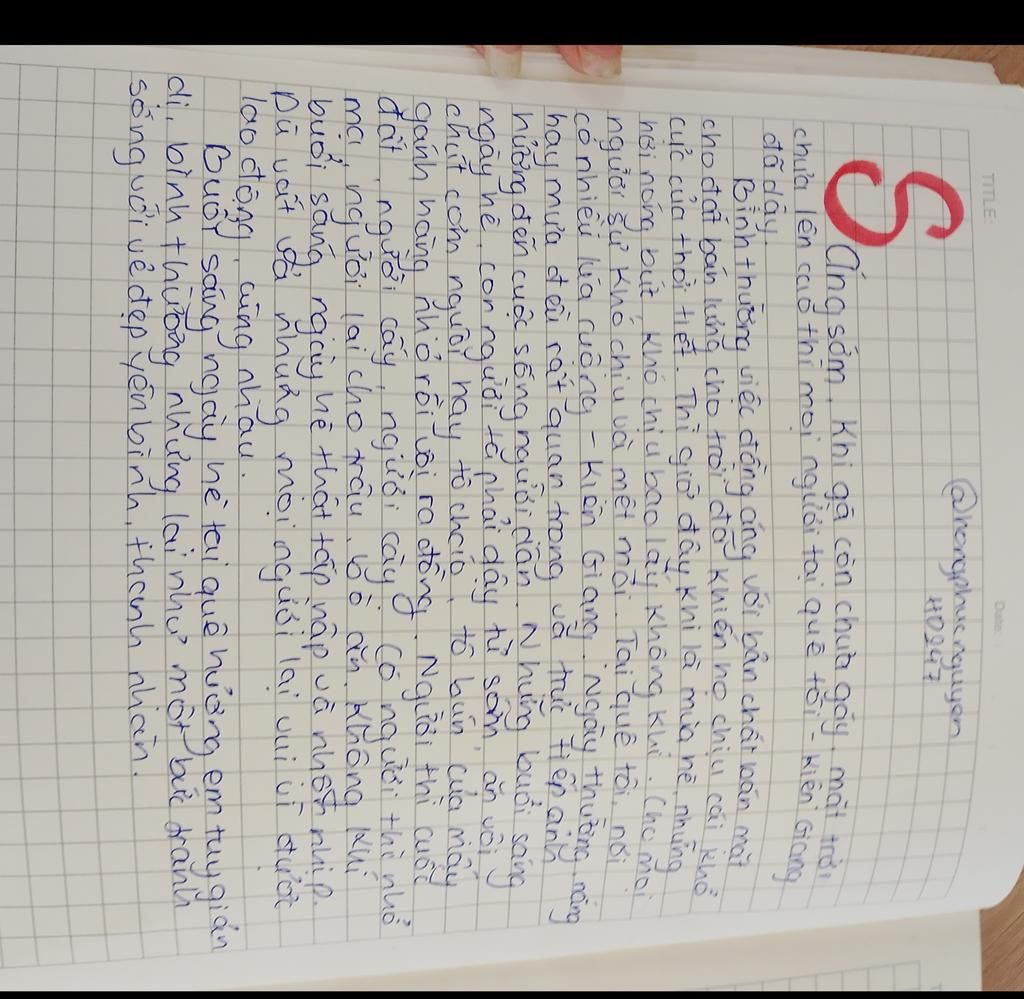 TITLE:
Date:
@hongphucnguyen
#0247
Sáng sớm, khi gà còn chưa gáy, mặt trời
chưa lên cao thì mọi người tại quê tôi - Kiên Giang
đã dậy.
Bình thường việc đồng áng với bản chất bán mặt
cho đất bán lưng cho trời đã khiến họ chịu cái khổ
cực của thời tiết. Thì giờ đây khi là mùa hè, những
hơi nóng bức khó chịu bao lấy không khí. Cho mọi
người sự khó chịu và mệt mỏi. Tại quê tôi, nơi
có nhiều lúa cuông - Kiên Giang. Ngày thường, nắng
hay mưa đều rất quan trọng và trực tiếp ảnh
hưởng đến cuộc sống người dân. Những buổi sáng
ngày hè, con người ta phải dậy từ sớm, ăn vội
chút cơm nguội hay tô cháo, tô bún của mấy
gánh hàng nhỏ rồi vội ra đồng. Người thì cuốc
đất, người cấy, người cày. Có người thì nhổ
mạ, người lại cho trâu, bò ăn. Không khí
buổi sáng ngày hè thật tấp nập và nhộn nhịp.
Dù vất vả nhưng mọi người lại vui vì được
lao động cùng nhau.
Buổi sáng ngày hè tại quê hương em tuy giản
dị, bình thường nhưng lại như một bức tranh
sống với vẻ đẹp yên bình, thanh nhàn.